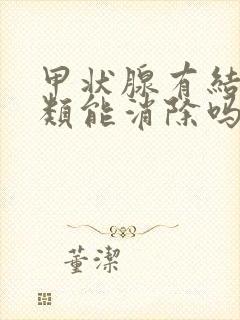 甲状腺有結
類能消除吗
董潔